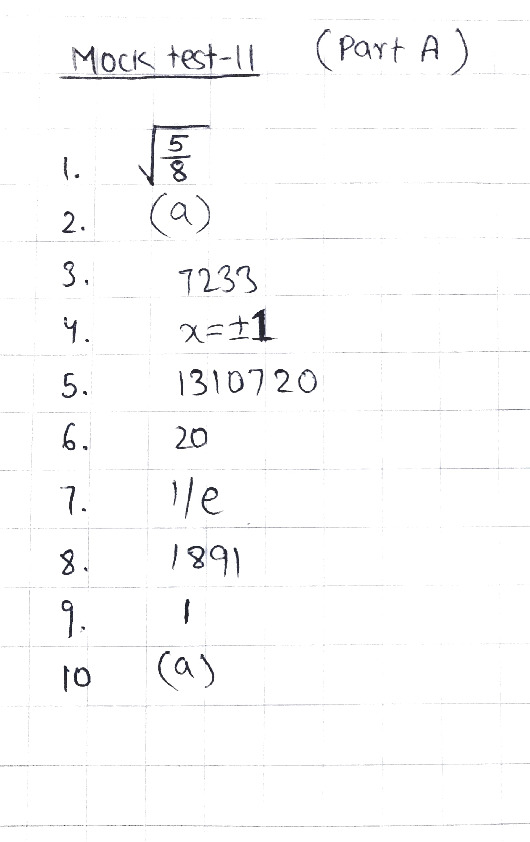 Mock test-11 (Part A)
1. √(5/8)
2. (a)
3. 7233
4. x=±1
5. 1310720
6. 20
7. 1/e
8. 1891
9. 1
10 (a)